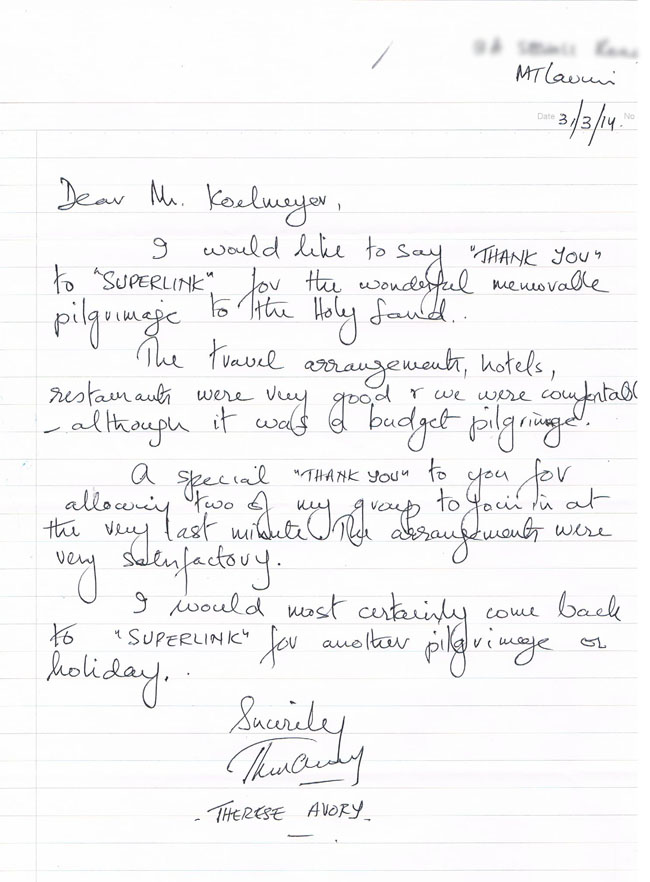 MTLavini
Date 31/3/14. No
Dear Mr. Koelmeyer,
I would like to say "THANK YOU"
to "SUPERLINK" for the wonderful memorable
pilgrimage to the Holy Land..
The travel arrangements, hotels,
restaurants were very good & we were comfortabl
- although it was a budget pilgrimage.
A special "THANK YOU" to you for
allowing two of my group to join in at
the very last minute. The arrangements were
very satisfactory.
I would most certainly come back
to "SUPERLINK" for another pilgrimage or
holiday..
Sincerely
- THERESE AVORY -